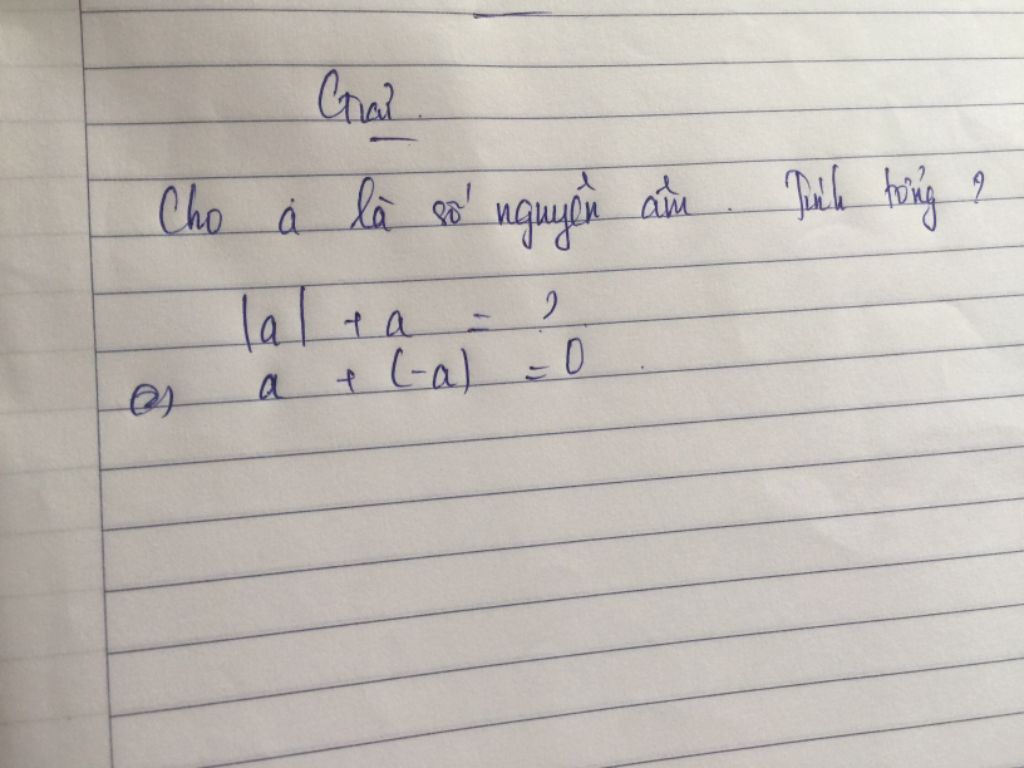 Giải
Cho a là số nguyên âm. Tính tổng ?
|a| + a = ?
a + (-a) = 0